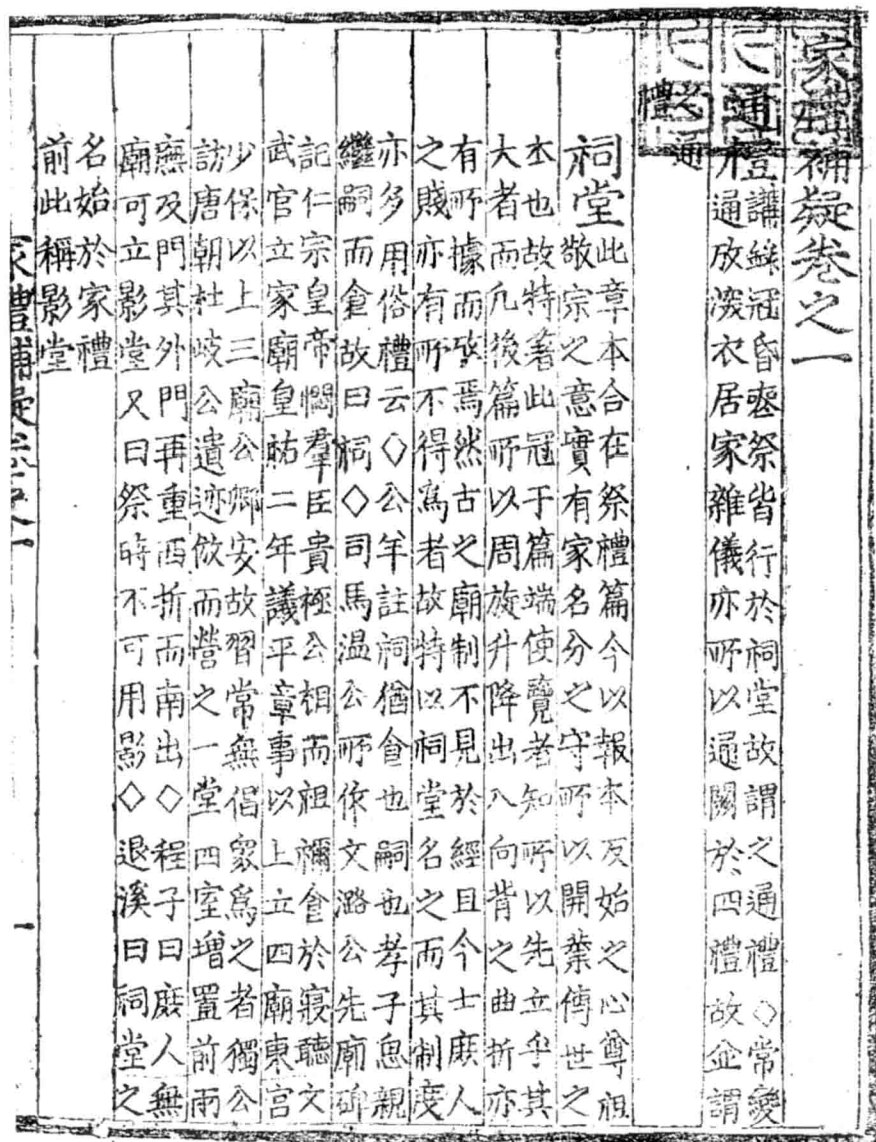 家禮補疑卷之一
通禮
冠昏喪祭皆行於祠堂故謂之通禮◇常變
通放深衣居家雜儀亦所以通關於四禮故並謂
之通
禮
祠堂
此章本合在祭禮篇今以報本反始之心尊祖
敬宗之意實有家名分之守所以開業傳世之
本也故特著此冠于篇端使覽者知所以先立乎其
大者而凡後篇所以周旋升降出入向背之曲折亦
有所據而攷焉然古之廟制不見於經且今士庶人
之賤亦有所不得爲者故特以祠堂名之而其制度
亦多用俗禮云◇公羊註祠猶食也嗣也孝子思親
繼嗣而食故曰祠◇司馬溫公所作文潞公先廟碑
記仁宗皇帝憫羣臣貴極公相而祖禰食於寢聽文
武官立家廟皇祐二年議平章事以上立四廟東宮
少保以上三廟公卿安故習常無倡衆爲之者獨公
訪唐朝杜岐公遺迹倣而營之一堂四室增置前兩
廡及門其外門再重西折而南出◇程子曰庶人無
廟可立影堂又曰祭時不可用影◇退溪曰祠堂之
名始於家禮
前此稱影堂
家禮補疑卷之一
一